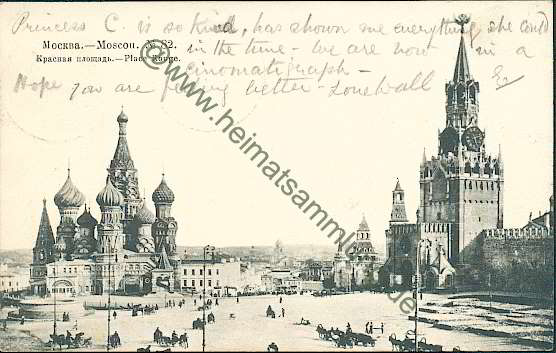 Princess C. is so kind, has shown me everything she could
in the time - we are now in a
Москва.—Moscou. № 82.
Красная площадь.—Place Rouge.
cinomatigraph -
Hope you are feeling better -
www.heimatsammlung.de